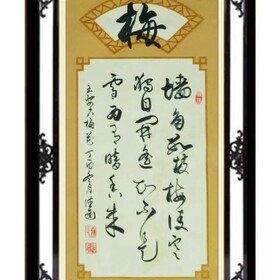 梅
墙角数枝梅凌寒
独自开遥知不是
雪为有暗香来
王安石梅花丁酉